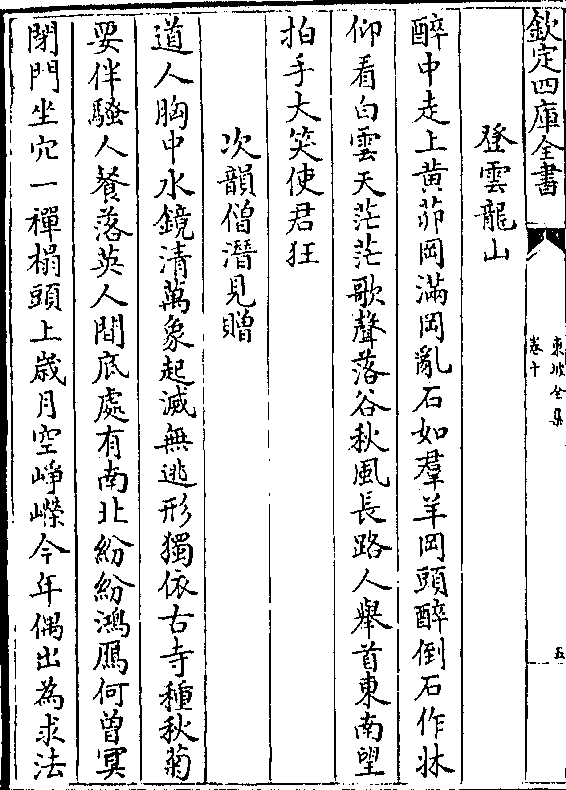 欽定四庫全書
東坡全集
卷十
五
登雲龍山
醉中走上黄茆岡滿岡亂石如羣羊岡頭醉倒石作牀
仰看白雲天茫茫歌聲落谷秋風長路人舉首東南望
拍手大笑使君狂
次韻僧潛見贈
道人胸中水鏡清萬象起滅無逃形獨依古寺種秋菊
要伴騷人餐落英人間底處有南北紛紛鴻鴈何曽冥
閉門坐穴一禪榻頭上歲月空崢嶸今年偶出為求法